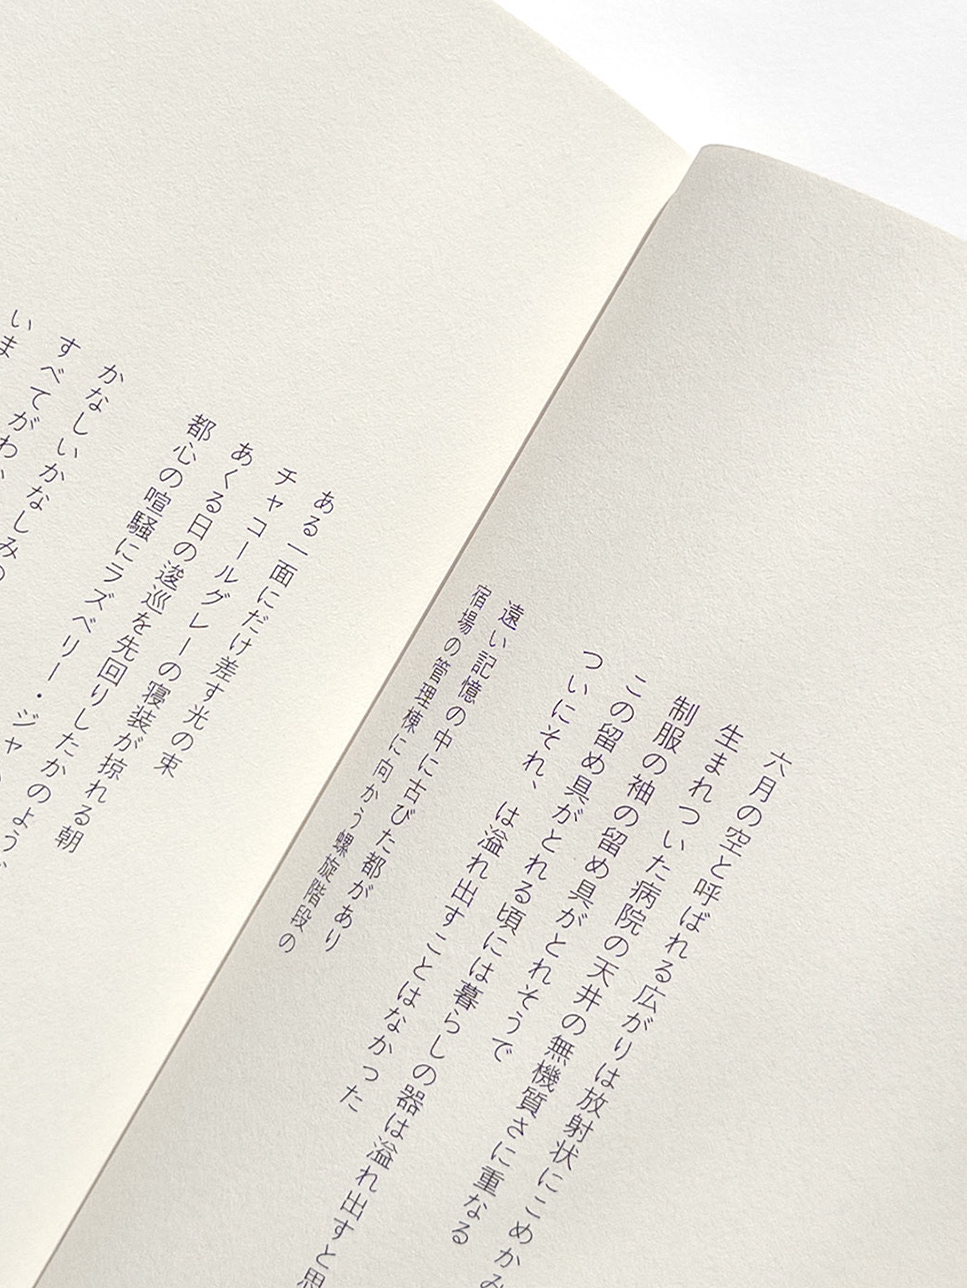 六月の空と呼ばれる広がりは放射状にこめかみ
生まれついた病院の天井の無機質さに重なる
制服の袖の留め具がとれそうで
この留め具がとれる頃には暮らしの器は溢れ出すと思
ついにそれ、は溢れ出すことはなかった
遠い記憶の中に古びた都があり
宿場の管理棟に向かう螺旋階段の
ある一面にだけ差す光の束
チャコールグレーの寝装が掠れる朝
あくる日の逡巡を先回りしたかのよう
都心の喧騒にラズベリー・ジャ
かなしいかなしみの
すべてがわ
いま